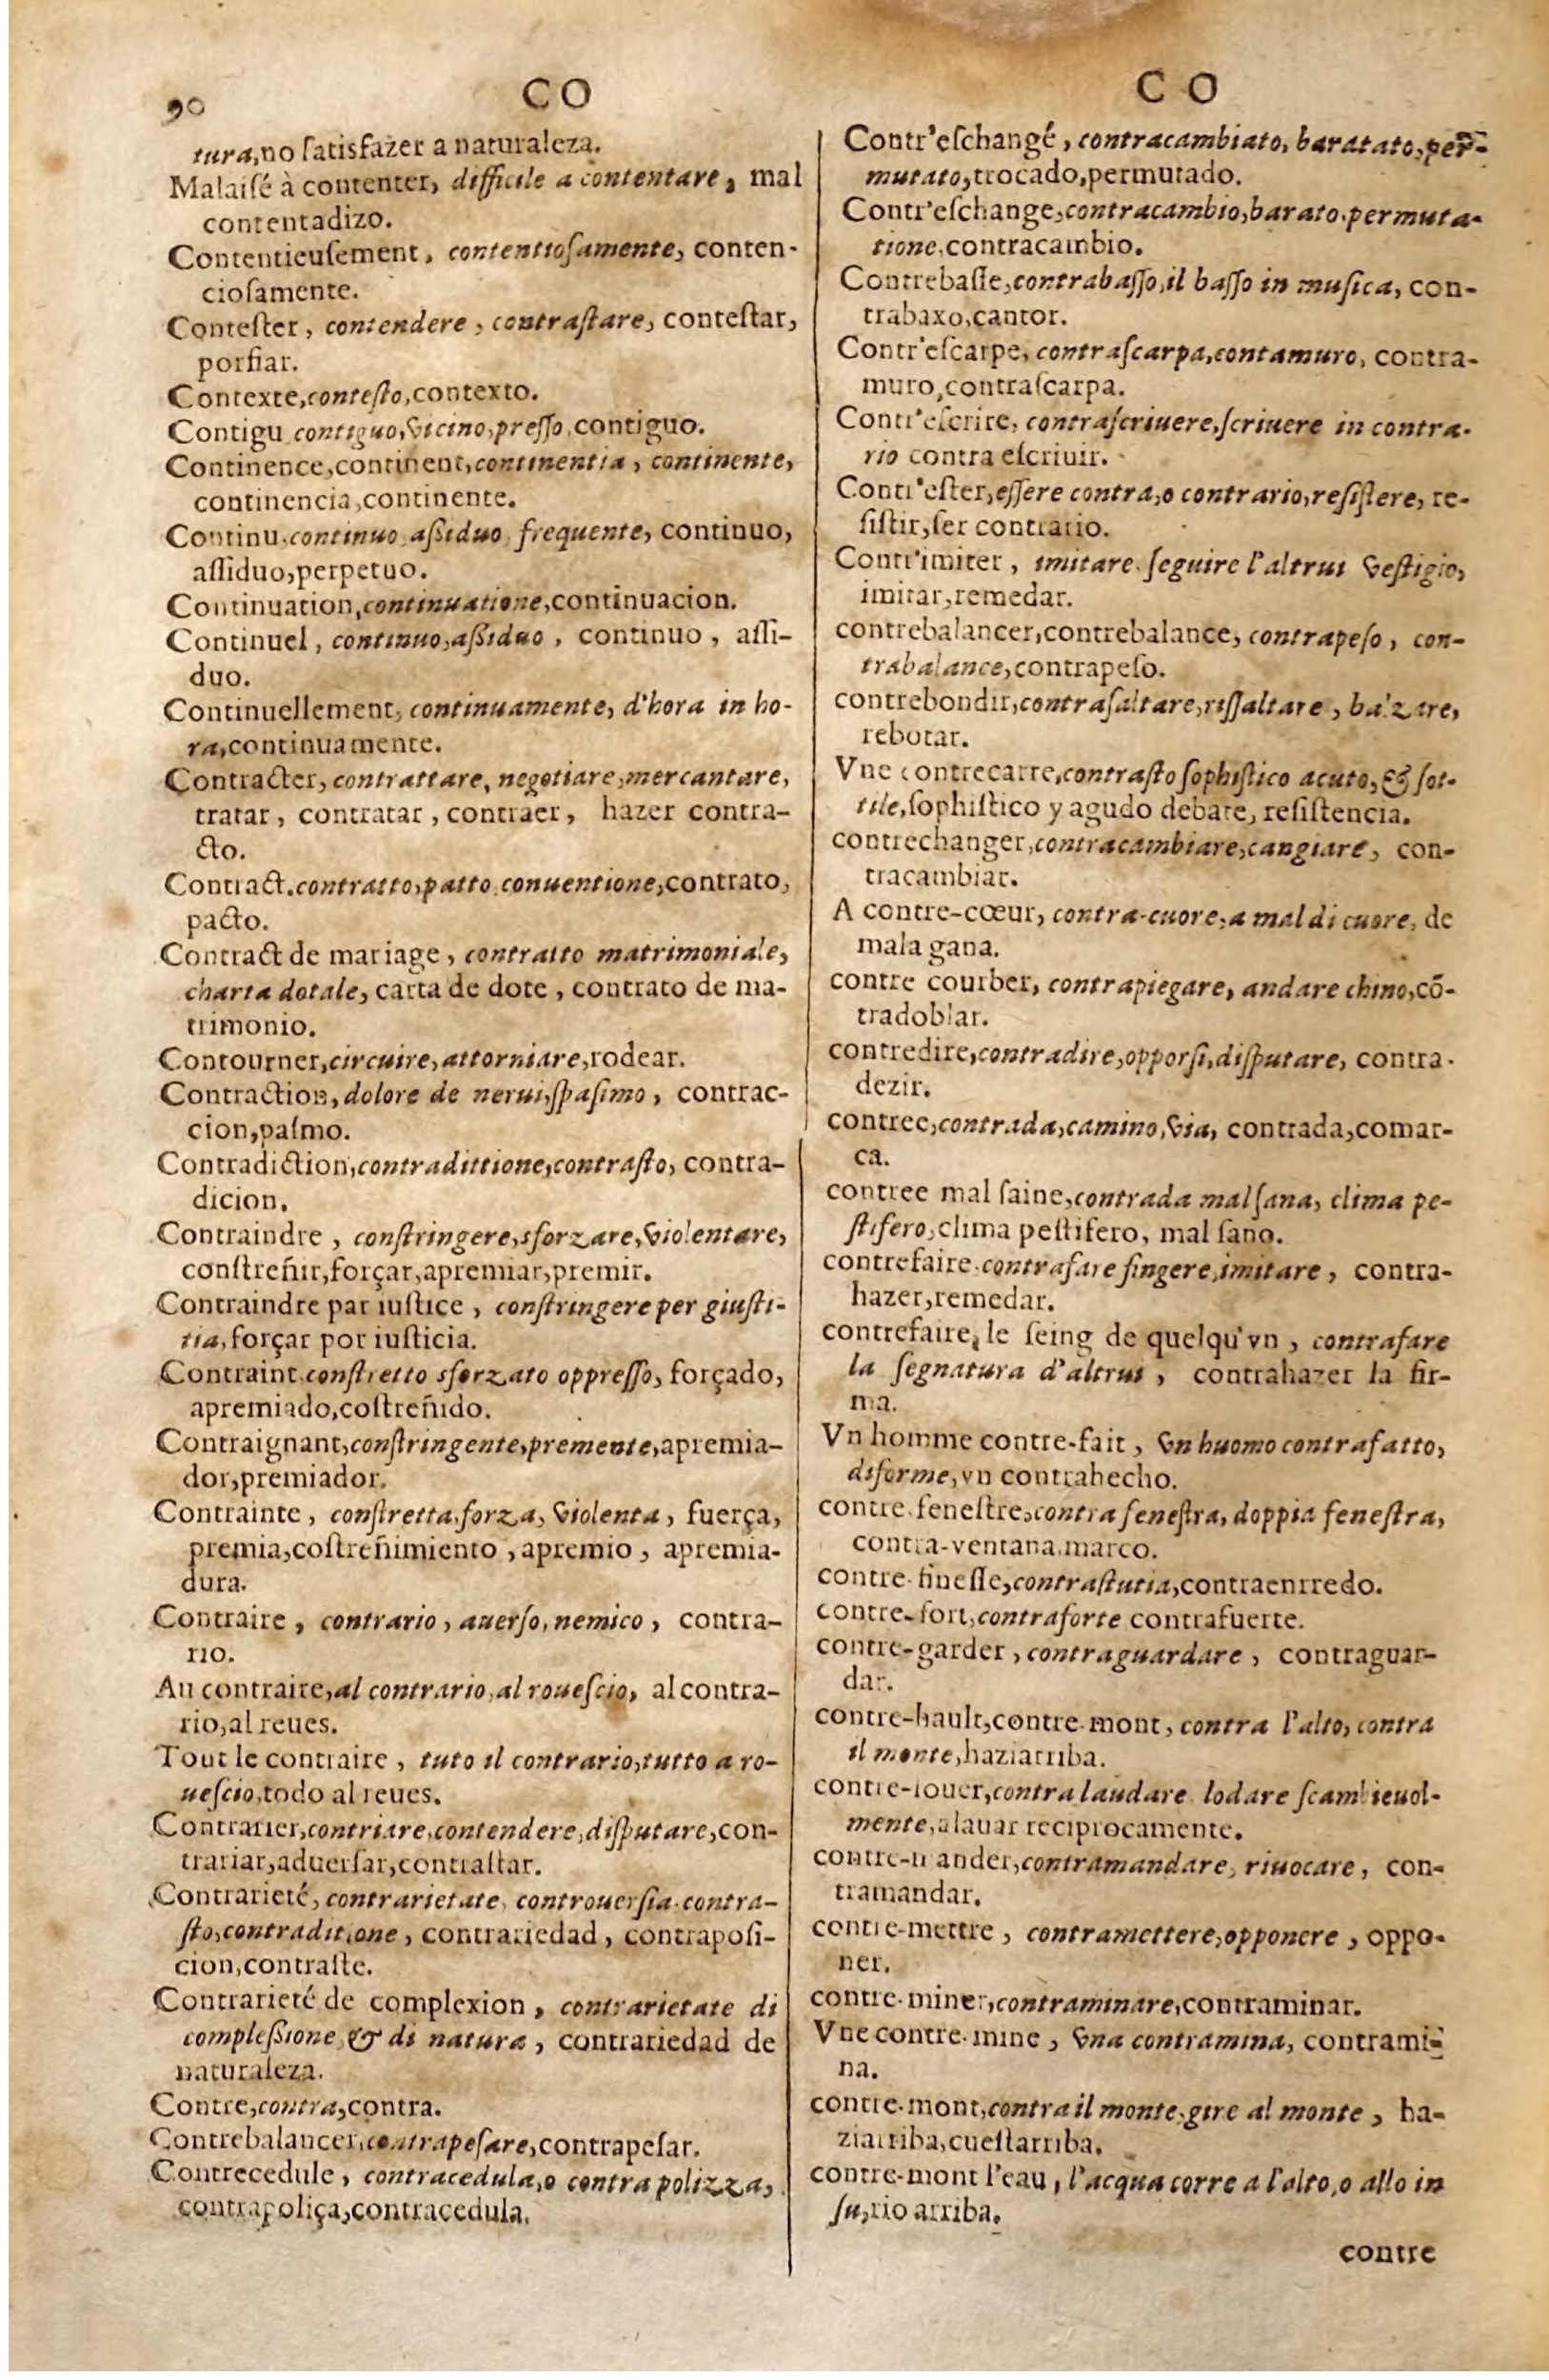 90
CO
CO
tura,no ſatisfazer a naturaleza.
Malaiſé à contenter, difficile a contentare, mal
contentadizo.
Contentieuſement, contentioſamente, conten-
cioſamente.
Conteſter, contendere, contraſtare, conteſtar,
porfiar.
Contexte,conteſto,contexto.
Contigu contiguo,vicino,preſſo,contiguo.
Continence,continent,continentia, continente,
continencia,continente.
Continu,continuo aßiduo frequente, continuo,
aſſiduo,perpetuo.
Continuation,continuatione,continuacion.
Continuel, continuo,aßiduo, continuo, aſſi-
duo.
Continuellement, continuamente, d'hora in ho-
ra,continuamente.
Contracter, contrattare, negotiare,mercantare,
tratar, contratar, contraer, hazer contra-
cto.
Contract.contratto,patto conuentione,contrato,
pacto.
Contract de mariage, contratto matrimoniale,
charta dotale, carta de dote, contrato de ma-
trimonio.
Contourner,circuire,attorniare,rodear.
Contraction,dolore de nerui,ſpaſimo, contrac-
cion,paſmo.
Contradiction,contradittione,contraſto, contra-
dicion.
Contraindre, conſtringere,sforzare,violentare,
conſtreñir,forçar,apremiar,premir.
Contraindre par iuſtice, conſtringere per giuſti-
tia,forçar por iuſticia.
Contraint.conſtretto sforzato oppreſſo, forçado,
apremiado,coſtreñido.
Contraignant,conſtringente,premente,apremia-
dor,premiador.
Contrainte, conſtretta.forza, violenta, fuerça,
premia,coſtreñimiento,apremio, apremia-
dura.
Contraire, contrario, auerſo,nemico, contra-
rio.
Au contraire,al contrario,al roueſcio, al contra-
rio,al reues.
Tout le contraire, tuto il contrario,tutto a ro-
ueſcio,todo al reues.
Contrarier,contriare,contendere,diſputare,con-
trariar,aduerſar,contraſtar.
Contrarieté, contrarietate, controuerſia.contra-
ſto,contraditione, contrariedad, contrapoſi-
cion,contraſte.
Contrarieté de complexion, contrarietate di
compleßione & di natura, contrariedad de
naturaleza.
Contre,contra,contra.
Contrebalancer,contrapeſare,contrapeſar.
Contrecedule, contracedula,o contra polizza,
contrapoliça,contracedula.
Contr'eſchangé, contracambiato, baratato,per-
mutato,trocado,permutado.
Contr'eſchange,contracambio,barato.permuta-
tione,contracambio.
Contrebaſſe,contrabaſſo,il baſſo in muſica, con-
trabaxo,cantor.
Contr'eſcarpe, contraſcarpa,contamuro, contra-
muro,contraſcarpa.
Contr'eſcrire, contraſcriuere,ſcriuere in contra-
rio contra eſcriuir.
Contr'eſter,eſſere contra,o contrario,reſiſtere, re-
ſiſtir,ſer contrario.
Contr'imiter, imitare.ſeguire l'altrui veſtigio,
imitar,remedar.
contrebalancer,contrebalance, contrapeſo, con-
trabalance,contrapeſo.
contrebondir,contraſaltare,riſſaltare, balzare,
rebotar.
Vne contrecarre,contraſto ſophiſtico acuto,& ſot-
tile,ſophiſtico y agudo debate, reſiſtencia.
contrechanger,contracambiare,cangiare, con-
tracambiar.
A contre-cœur, contra-cuore,a mal di cuore, de
mala gana.
contre courber, contrapiegare, andare chino,cõ-
tradoblar.
contredire,contradire,opporſi,diſputare, contra-
dezir.
contree,contrada,camino,via, contrada,comar-
ca.
contree mal ſaine,contrada malſana, clima pe-
ſtifero,clima peſtifero, mal ſano.
contrefaire.contrafare fingere,imitare, contra-
hazer,remedar.
contrefaire, le ſeing de quelqu'vn, contrafare
la ſegnatura d'altrui, contrahazer la fir-
ma.
Vn homme contre-fait, vn huomo contrafatto,
diforme,vn contrahecho.
contre feneſtre,contra feneſtra, doppia feneſtra,
contra-ventana.marco.
contre-fineſſe,contraſtutia,contraenrredo.
contre-fort,contraforte contrafuerte.
contre-garder, contraguardare, contraguar-
dar.
contre-hault,contre-mont, contra l'alto, contra
il monte,haziarriba.
contre-louer,contra laudare lodare ſcambieuol-
mente,alauar reciprocamente.
contre-mander,contramandare, riuocare, con-
tramandar.
contre-mettre, contramettere,opponere, oppo-
ner.
contre-miner,contraminare,contraminar.
Vne contre-mine, vna contramina, contrami-
na.
contre-mont,contra il monte.gire al monte, ha-
ziarriba,cueſtarriba.
contre-mont l'eau, l'acqua corre a l'alto,o allo in
ſu,rio arriba.
contre